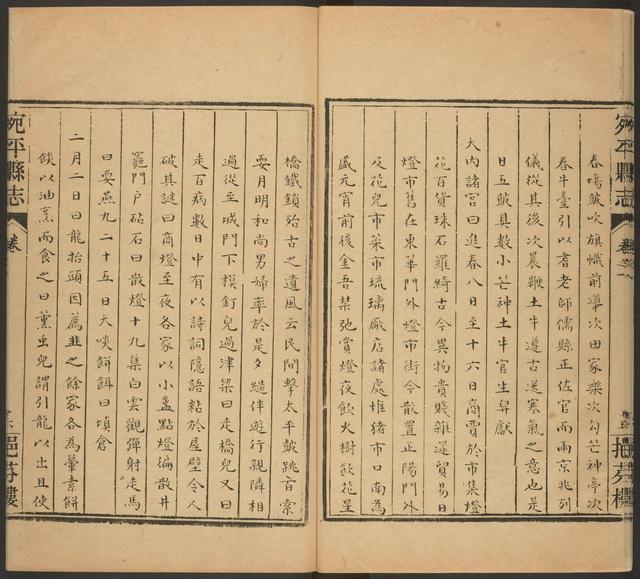 宛平縣志
卷六
挹芬樓
春場鼓吹旗幟前導次田家樂次勾芒神亭次
春牛臺引以耆老師儒縣正佐官而兩京兆列
儀從其後次晨鞭土牛遵古送寒氣之意也是
日五鼓具數小芒神土牛官生舁獻
大內諸宮曰進春八日至十六日商賈於市集燈
花百貨珠石羅綺古今異物貴賤雜遝貿易曰
燈市舊在東華門外燈市街今散置正陽門外
及花兒市菜市琉璃廠店諸處惟猪市口南為
盛元宵前後金吾禁弛賞燈夜飲火樹銀花星
橋鐵鎖殆古之遺風云民間擊太平鼓跳百索
耍月明和尚男婦率於是夕結伴遊行親隣相
過從至城門下摸釘兒過津梁曰走橋兒又曰
走百病數日中有以詩詞隱語粘於屋壁令人
破其謎曰商燈至夜各家以小盞點燈徧散井
竈門戶砧石曰散燈十九集白雲觀彈射走馬
曰耍燕九二十五日大啖餅餌曰填倉
二月二日曰龍抬頭因薦韭之餘家各為葷素餅
餤以油烹而食之曰薰虫兒謂引龍以出且使
宛平縣志
卷
挹芬樓